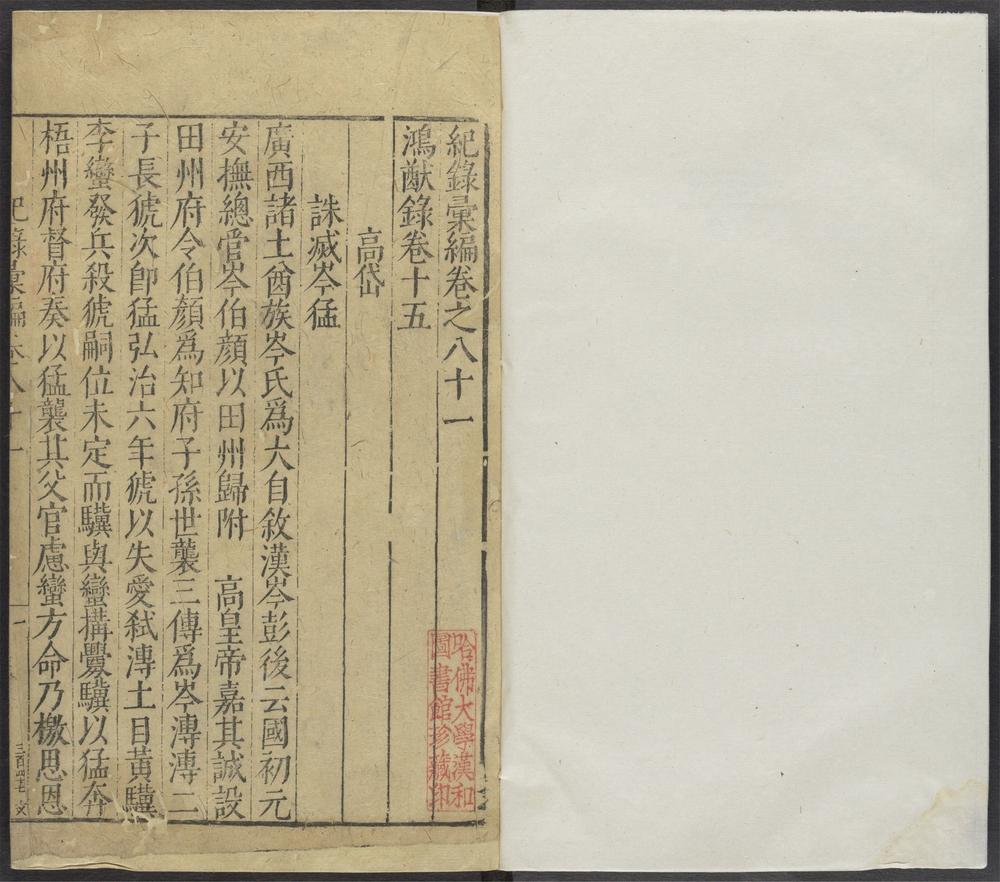 紀錄彙編卷之八十一
鴻猷錄卷十五
高岱
誅滅岑猛
廣西諸土酋族岑氏爲大自敘漢岑彭後云國初元
安撫總管岑伯顏以田州歸附　高皇帝嘉其誠設
田州府令伯顏爲知府子孫世襲三傳爲岑漙漙二
子長猇次卽猛弘治六年猇以失愛弑漙土目黃驥
李蠻發兵殺猇嗣位未定而驥與蠻搆釁驥以猛奔
梧州府督府奏以猛襲其父官慮蠻方命乃檄思恩
紀錄彙編卷八十一
一
哈佛大學漢和
圖書館珍藏印